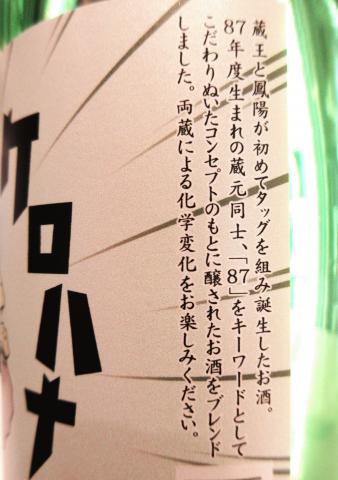 蔵王と鳳陽が初めてタッグを組み誕生したお酒。
87年度生まれの蔵元同士、「87」をキーワードとして
こだわりぬいたコンセプトのもとに醸されたお酒をブレンド
しました。両蔵による化学変化をお楽しみください。
ケロハナ